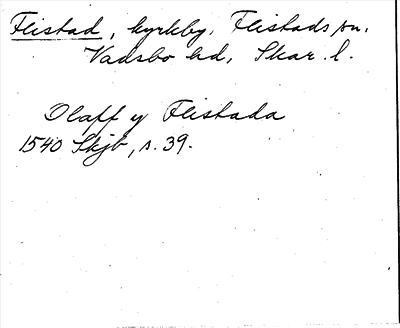 Flistad, kyrkby, Flistads sn,
Vadsbo hd, Skar. l.
Olaff y Flistada
1540 Skjb, s. 39.